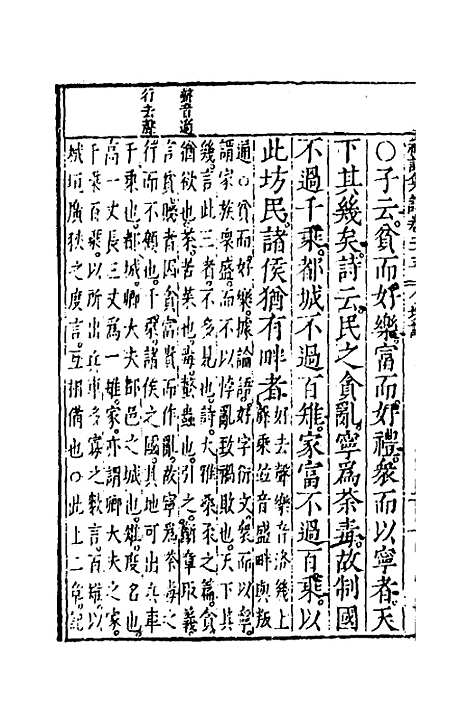 〇子云貧而好樂富而好禮衆而以寧者天
下其幾矣詩云民之貪亂寧爲荼毒故制國
不過千乘都城不過百雉家富不過百乘以
此坊民諸侯猶有畔者
好去聲樂音洛幾上
聲乘並音盛畔與叛
通〇貧而好樂據論語好字衍文衆而以寧
謂家族衆盛而不以悖亂致禍敗也天下其
幾言此三者不多見也詩大雅桑柔之篇貪
猶欲也荼苦菜也毒
也引之斷章取義
言貪勝者因貧富貴而作亂故寧爲荼毒之
行而不恤也千乘諸侯之國其地可出兵車
千乘也都城卿大夫都邑之城也雉度名也
高一丈長三丈爲一雉家亦謂卿大夫之家
千乘百乘以所出兵車多寡之數言百雉以
城垣廣狹之度言互相備也〇此上二章記
聲音過
行去聲